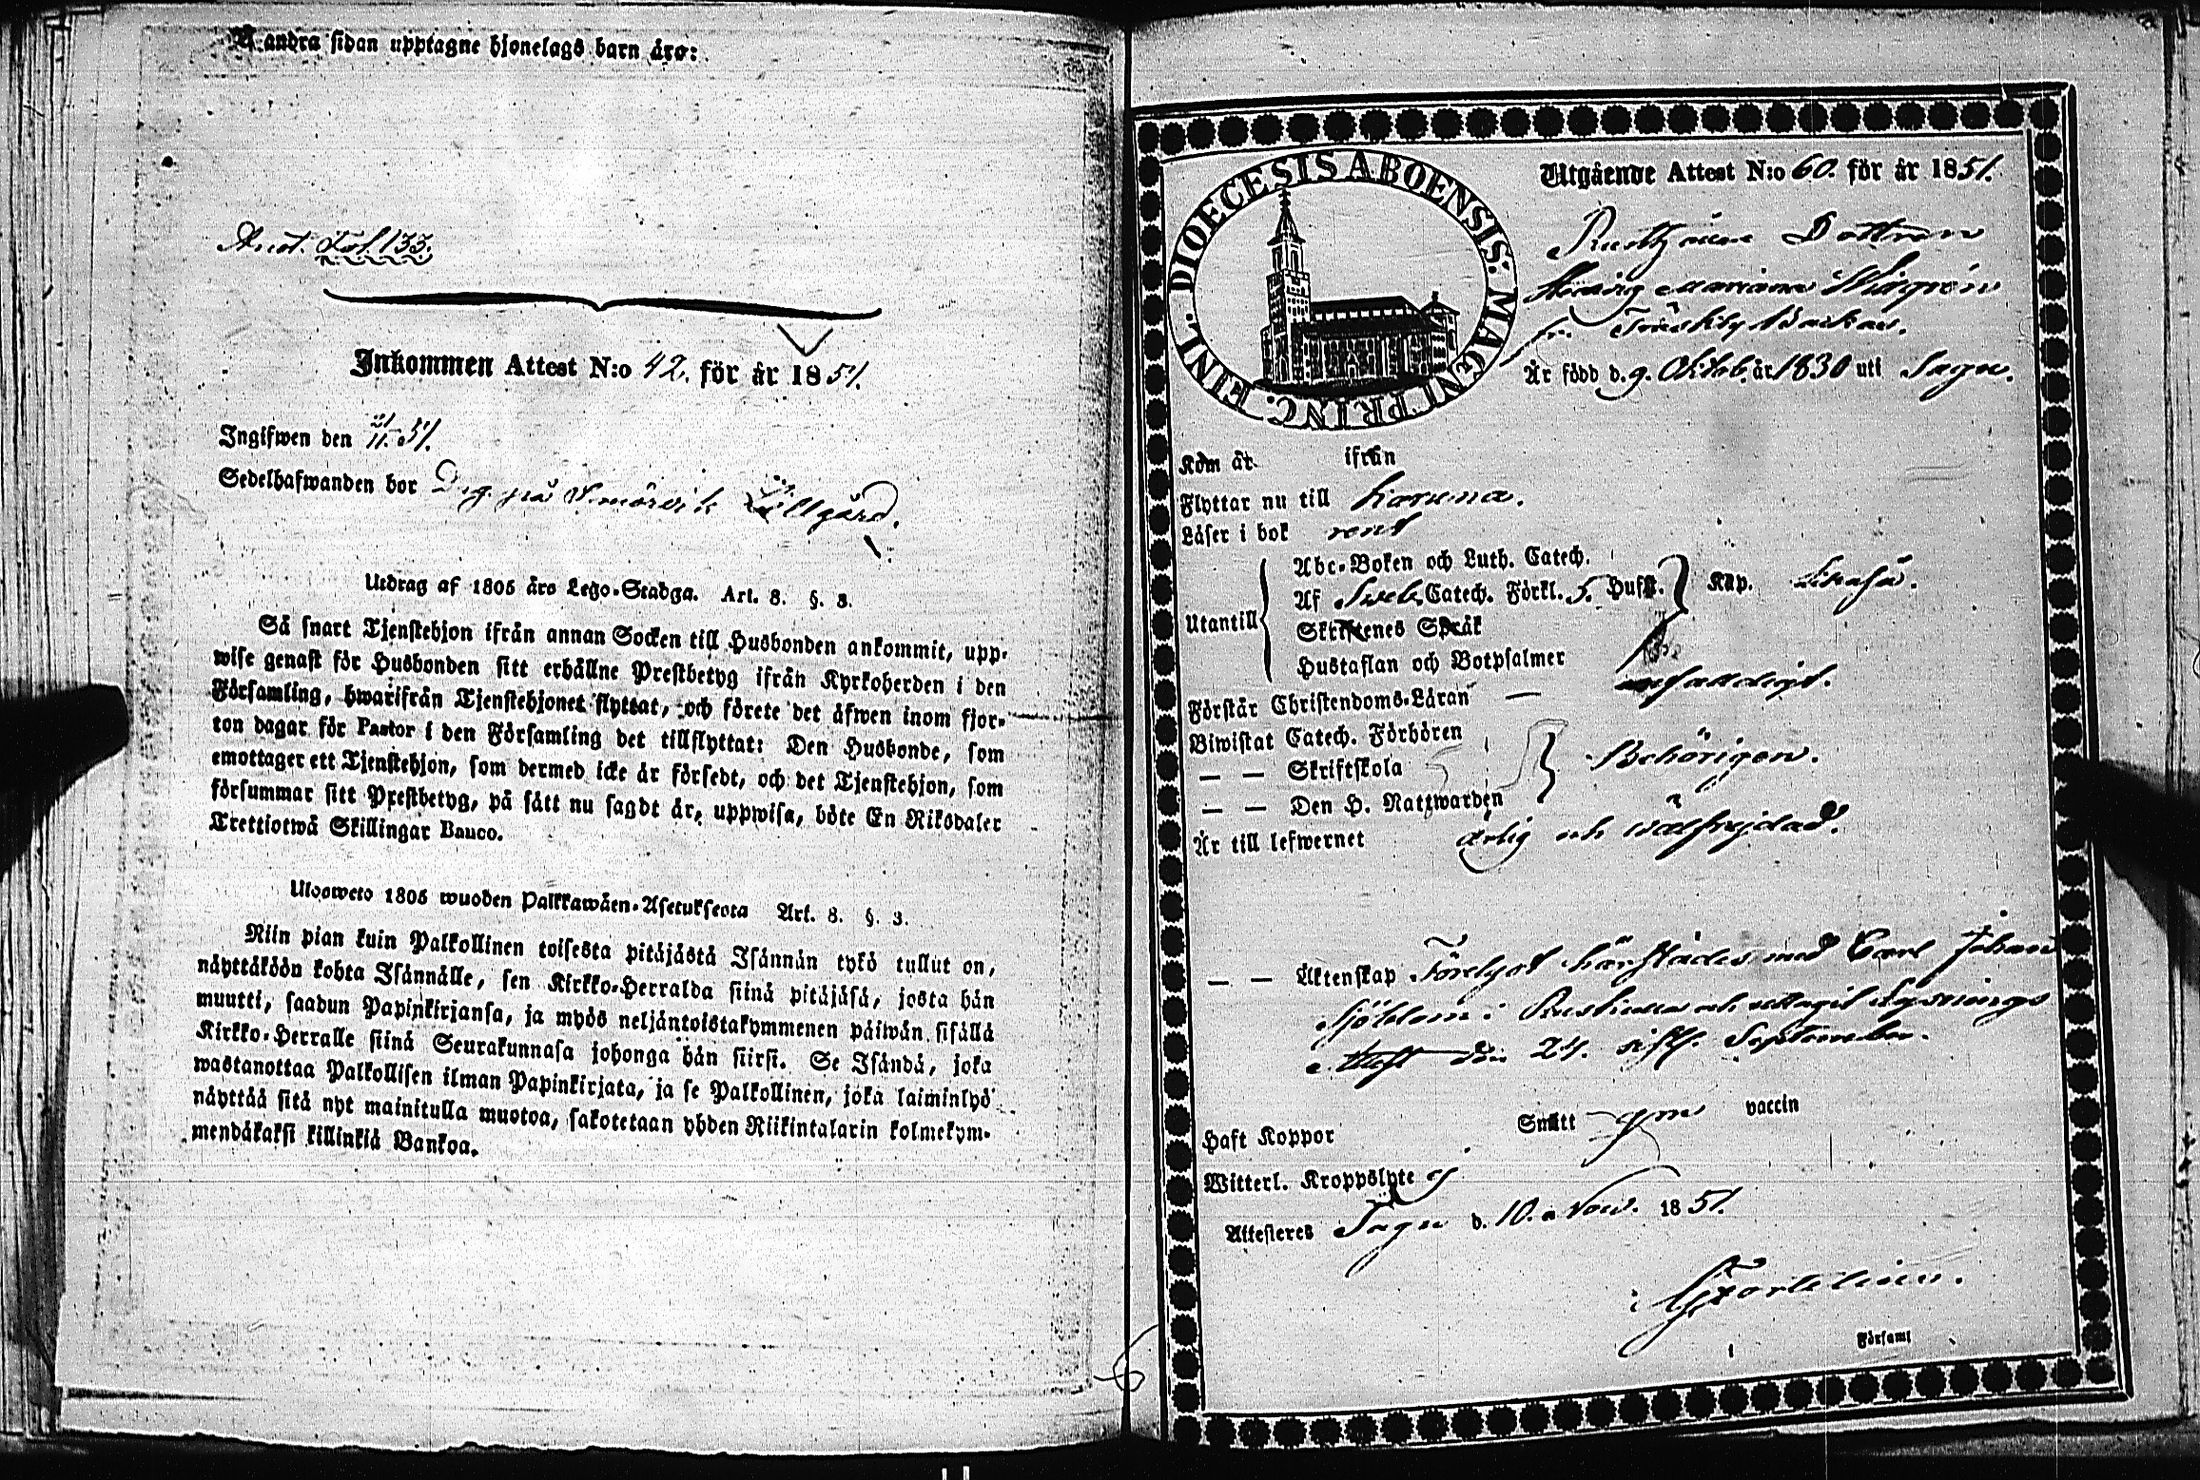 Å andra sidan upptagne hjonelags barn äro:
Anot. Fol. 133.
Inkommen Attest N:o 42. för år 1851.
Ingifwen den 21/11 51.
Sedelhafwanden bor Dräg. på Smörvik Lillgård.
Utdrag af 1805 års Lego-Stadga. Art. 8. §. 3.
Så snart Tjenstehjon ifrån annan Socken till Husbonden ankommit, upp-
wise genast för Husbonden sitt erhållne Prestbetyg ifrån Kyrkoherden i den
Församling, hwarifrån Tjenstehjonet flyttat, och förete det äfwen inom fjor-
ton dagar för Pastor i den Församling det tillflyttat: Den Husbonde, som
emottager ett Tjenstehjon, som dermed icke är försedt, och det Tjenstehjon, som
försummar sitt Prestbetyg, på sätt nu sagdt är, uppwisa, böte En Riksdaler
Trettiotwå Skillingar Banco.
Ulosweto 1805 wuoden Palkkawäen-Asetuksesta Art. 8. §. 3.
Niin pian kuin Palkollinen toisesta pitäjästä Isännän tykö tullut on,
näyttäköön kohta Isännälle, sen Kirkko-Herralda siinä pitäjäsä, josta hän
muutti, saadun Papinkirjansa, ja myös neljäntoistakymmenen päiwän sisällä
Kirkko-Herralle siinä Seurakunnasa johonga hän siirsi. Se Isändä, joka
wastanottaa Palkollisen ilman Papinkirjata, ja se Palkollinen, joka laiminlyö
näyttää sitä nyt mainitulla muotoa, sakotetaan yhden Riikintalarin kolmekym-
mendäkaksi killinkiä Bankoa.
DIOECESIS ABOENSIS: MAGNI PRINC. FINL.
Utgående Attest N:o 60. för år 1851.
Dottren
Hedvig Mariana
fr. Träskby Backas.
Är född d. 9. Oktob. år 1830 uti Sagu.
Kom år ifrån
Flyttar nu till Karuna.
Läser i bok rent
Abc-Boken och Luth. Catech.
Af Sveb. Catech. Förkl. 5. Hufst. Kap.
Utantill
Skriftenes Språk
Hustaflan och Botpsalmer
Förstår Christendoms-Läran — enfaldigt.
Biwistat Catech. Förhören
— — Skriftskola Behörigen.
— — Den H. Nattwarden
Är till lefwernet ärlig och välfrejdad.
— — Äktenskap Förelyst härstädes med Carl Johan
Sjöblom i och uttagit Lysnings
den 24. sistl. September.
Haft Koppor Smått gm vaccin
Witterl. Kroppslyte ej
Attesteres Sagu d. 10. Nov. 1851.
Församl